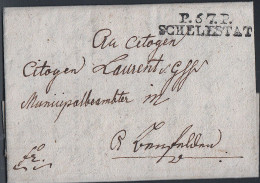 P.67.P.
SCHELESTAT
Au Citoyen
Citoyen Laurent
Municipalbeambter in
Benfelden